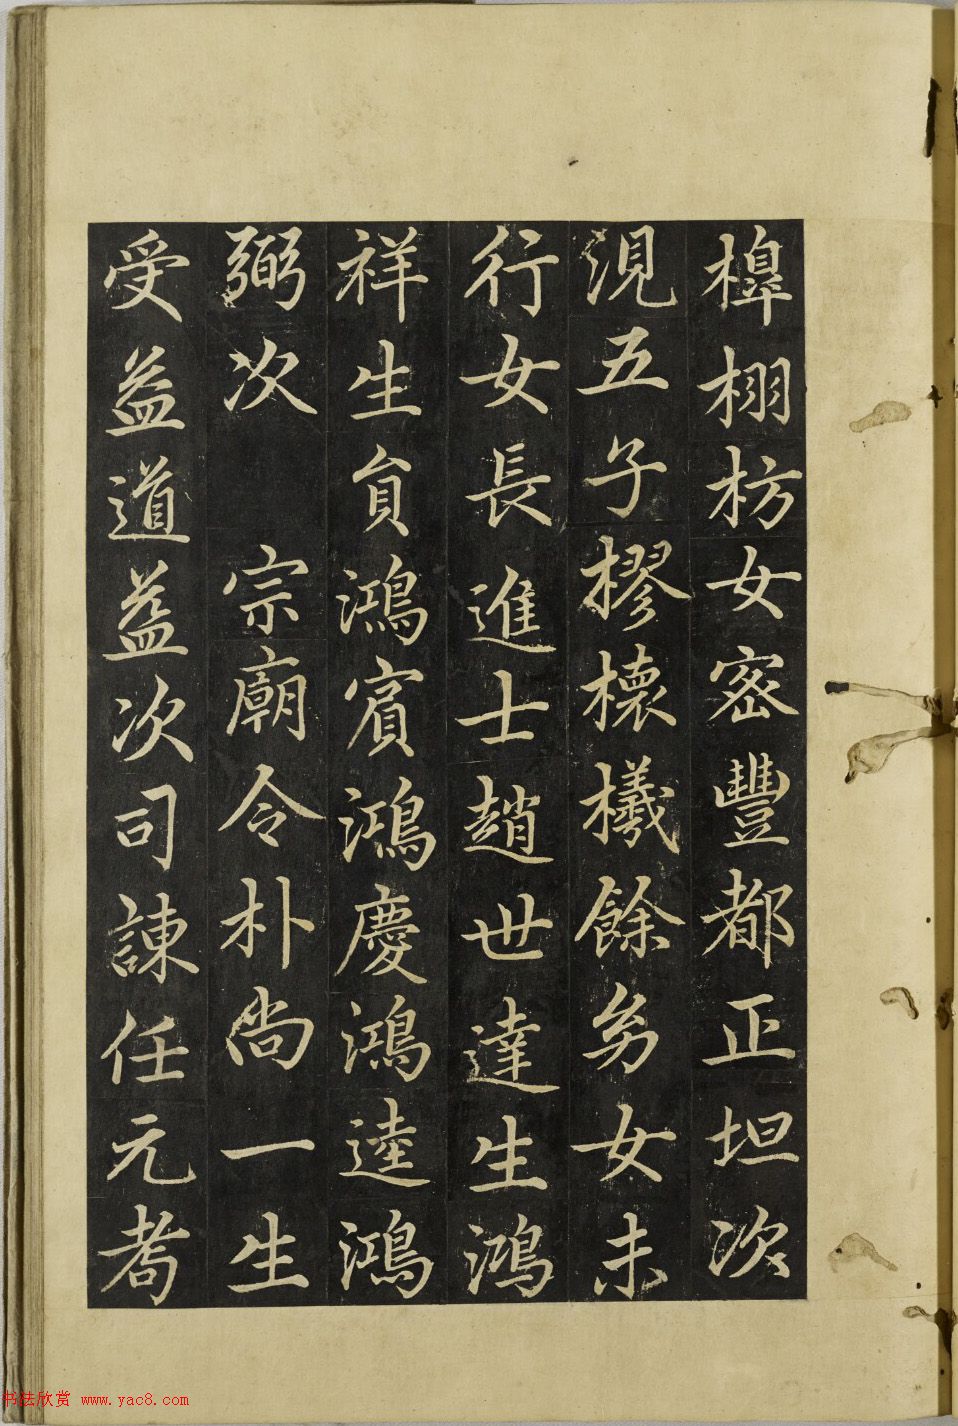 槹栩枋女密豐都正坦次
涀五子樛櫰檥餘幼女未
行女長進士趙世達生鴻
祥生負鴻賓鴻慶鴻逵鴻
弼次 宗廟令朴尚一生
受益道益次司諫任元耇
书法欣赏 www.yac8.com